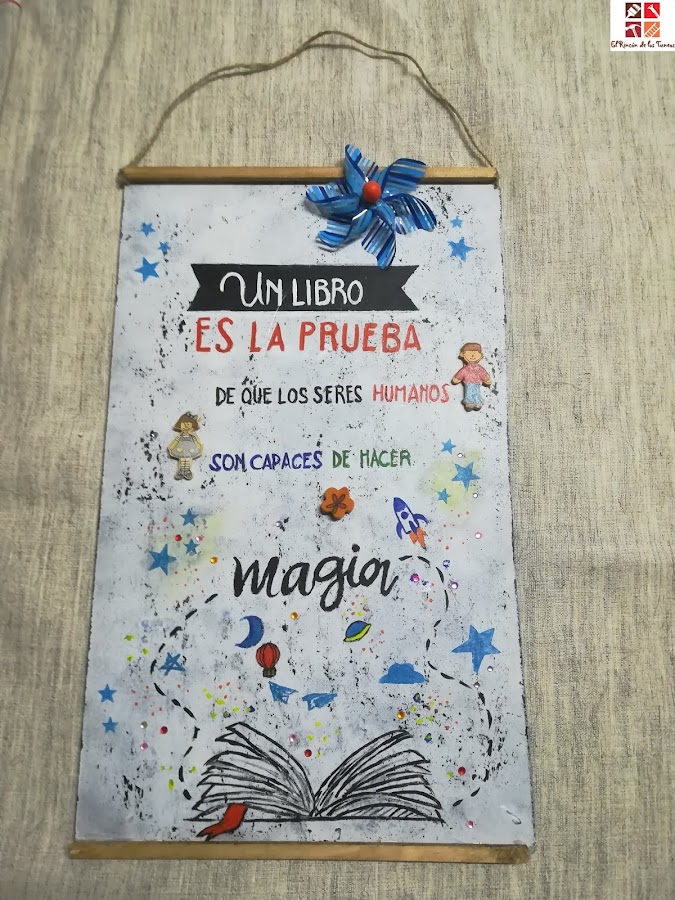 El Rincón de las Tunens
UN LIBRO
ES LA PRUEBA
DE QUE LOS SERES HUMANOS
SON CAPACES DE HACER
magia